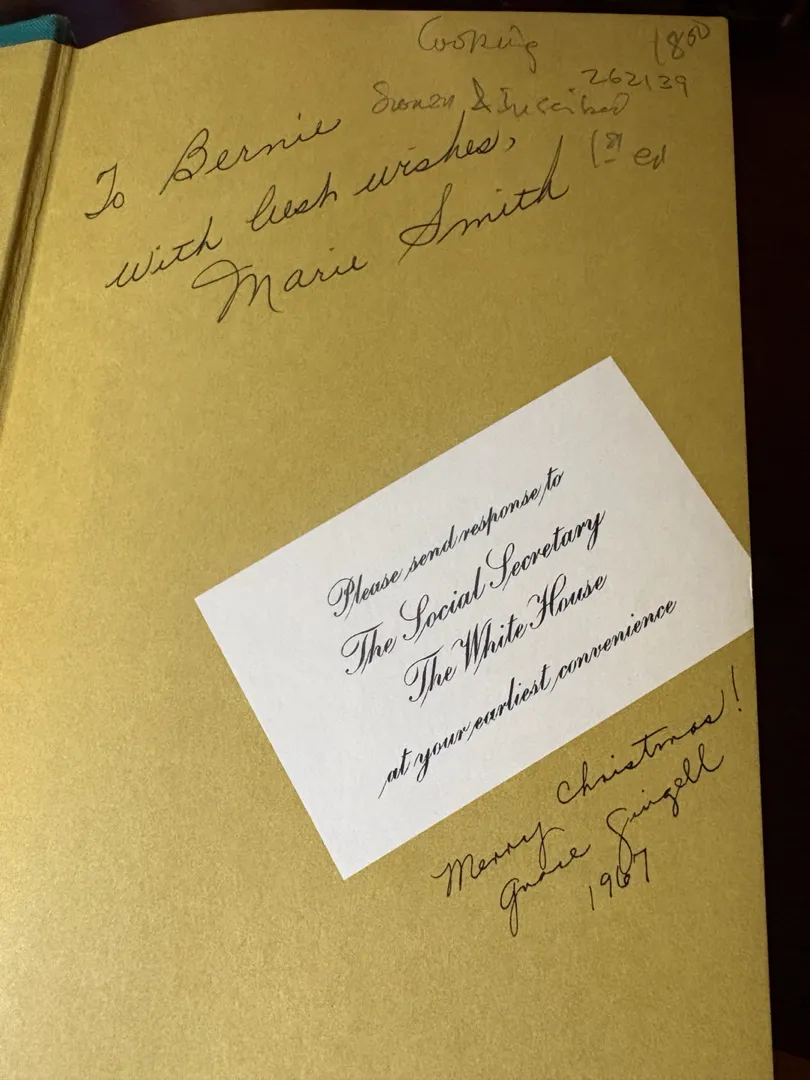 Cooking
18.00
262139
Signed & Inscribed
1st ed
To Bernie
with best wishes,
Marie Smith
Please send response to
The Social Secretary
The White House
at your earliest convenience
Merry Christmas!
Grace
1967